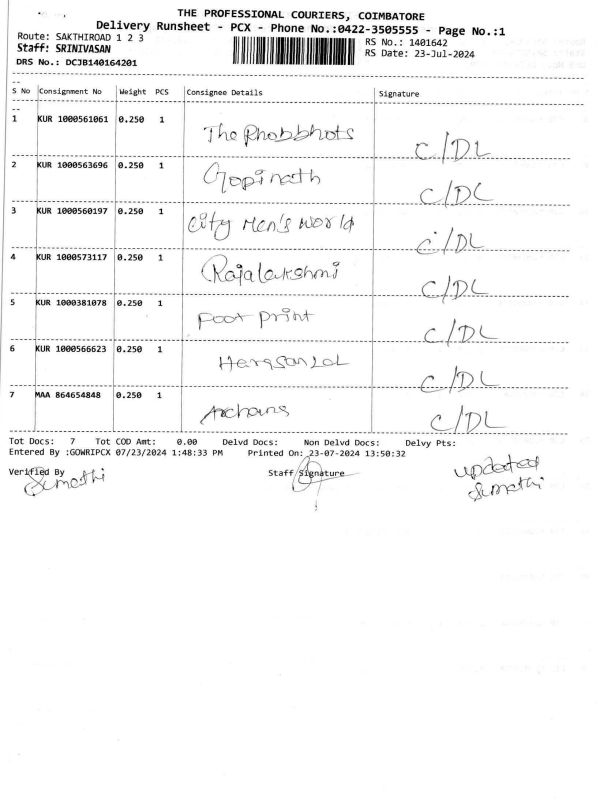 THE PROFESSIONAL COURIERS, COIMBATORE
Delivery Runsheet - PCX - Phone No.:0422-3505555 - Page No.:1
Route: SAKTHIROAD 1 2 3 RS No.: 1401642
Staff: SRINIVASAN RS Date: 23-Jul-2024
DRS No.: DCJB140164201
S No Consignment No Weight PCS Consignee Details Signature
1 KUR 1000561061 0.250 1 The Phobbhots C/DL
2 KUR 1000563696 0.250 1 Gopinath C/DL
3 KUR 1000560197 0.250 1 City Men's World C/DL
4 KUR 1000573117 0.250 1 Rajalakshmi C/DL
5 KUR 1000381078 0.250 1 Foot print C/DL
6 KUR 1000566623 0.250 1 C/DL
7 MAA 864654848 0.250 1 Archana C/DL
Tot Docs: 7 Tot COD Amt: 0.00 Delvd Docs: Non Delvd Docs: Delvy Pts:
Entered By :GOWRIPCX 07/23/2024 1:48:33 PM Printed On: 23-07-2024 13:50:32
Verified By Staff Signature updated
Sumathi Sumathi